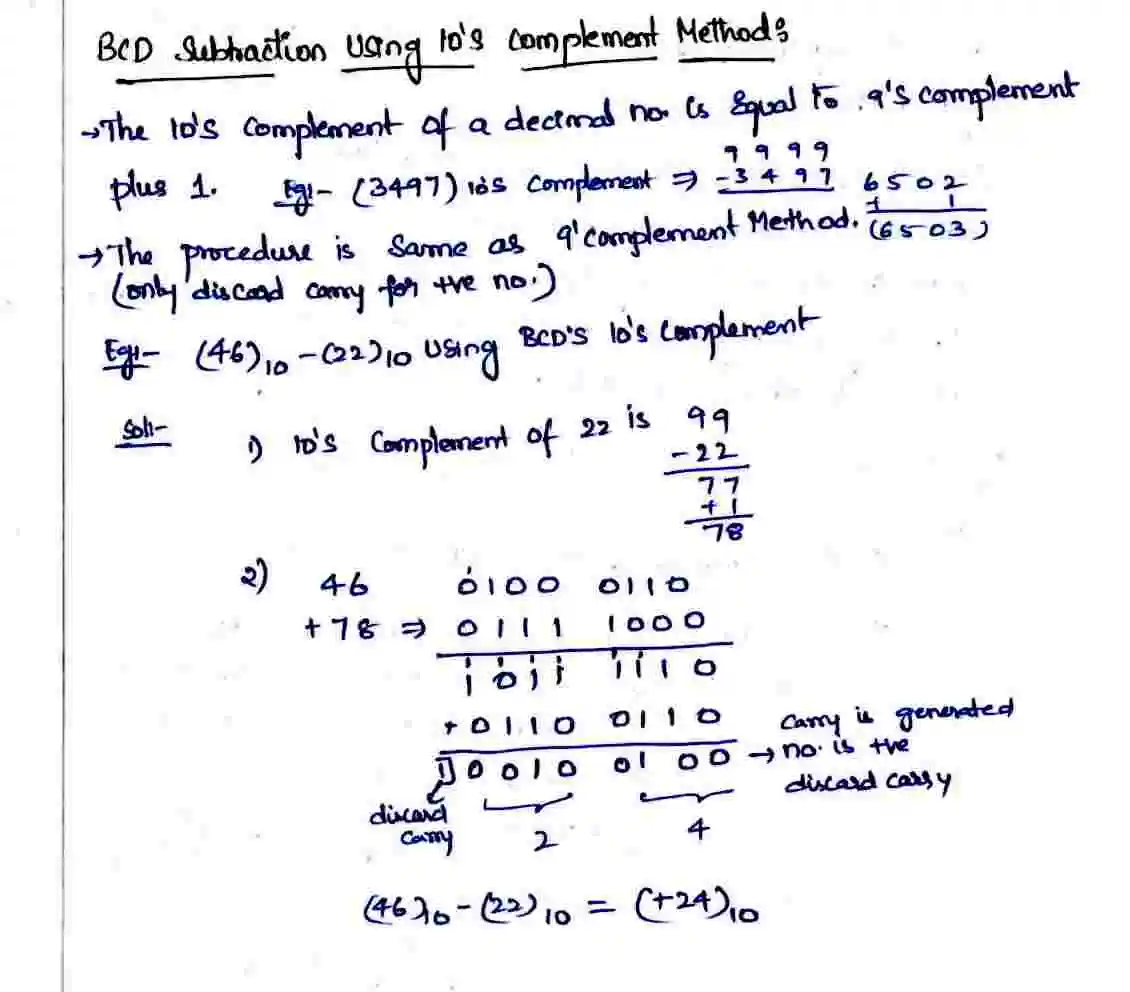 BCD Subtraction Using 10's Complement Method:
→ The 10's Complement of a decimal no. is Equal to 9's complement
plus 1. Eg:- (3497) 10's Complement ⇒ 9 9 9 9
- 3 4 9 7
6 5 0 2
+ 1
(6 5 0 3)
→ The procedure is same as 9' complement Method.
(only discard carry for +ve no.)
Eg:- (46)10 - (22)10 Using BCD'S 10's Complement
Sol:-
1) 10's Complement of 22 is 99
- 22
77
+ 1
78
2) 46 0100 0110
+ 78 ⇒ 0111 1000
1011 1110
+ 0110 0110
1) 0010 0100 → carry is generated
no. is +ve
discard carry
discard
carry
2 4
(46)10 - (22)10 = (+24)10